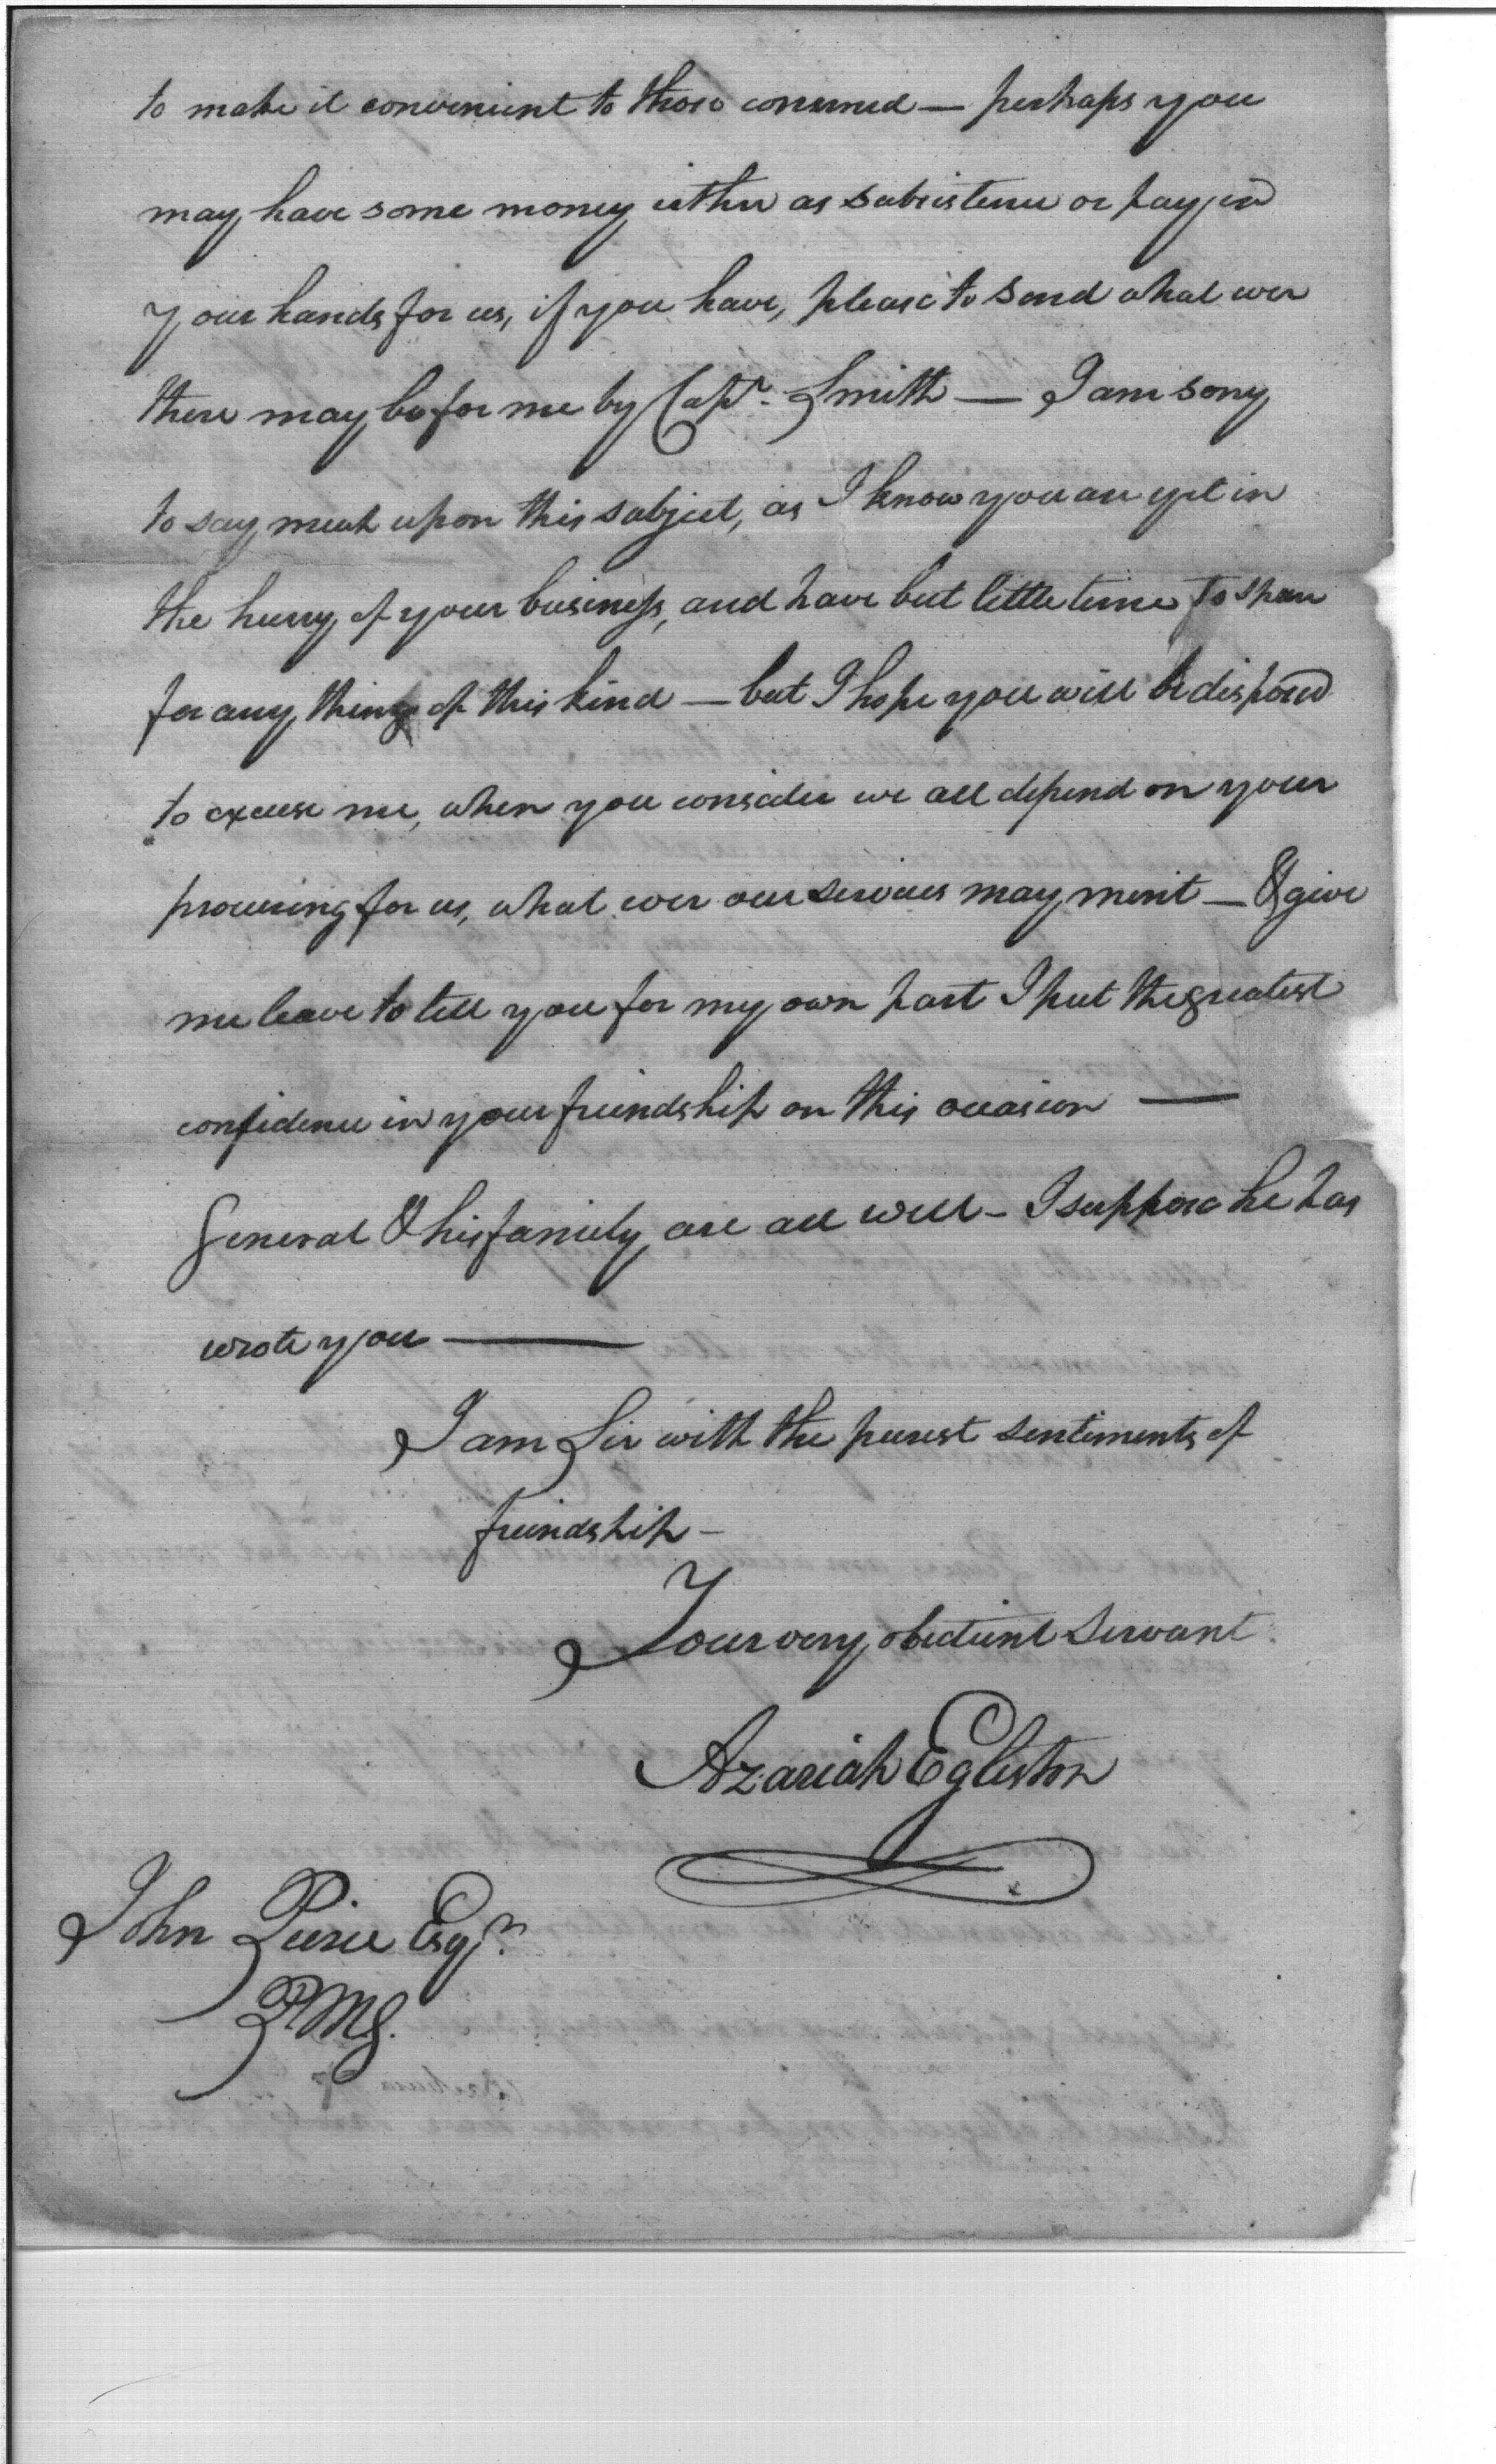 to make it convenient to those concerned — perhaps you
may have some money either as subsistence or pay in
your hands for us, if you have, please to send what ever
there may be for me by Capt. Smith — I am sorry
to say much upon this subject, as I know you are yet in
the hurry of your business, and have but little time to spare
for any thing of this kind — but I hope you will be disposed
to excuse me, when you consider we all depend on your
procuring for us, what ever our services may merit — & give
me leave to tell you for my own part I put the greatest
confidence in your friendship on this occasion —
General & his family are all well – I suppose he has
wrote you —
I am Sir with the purest sentiments of
friendship –
Your very obedient Servant
Azariah Egleston
John Pierce Esqr.
PMG.